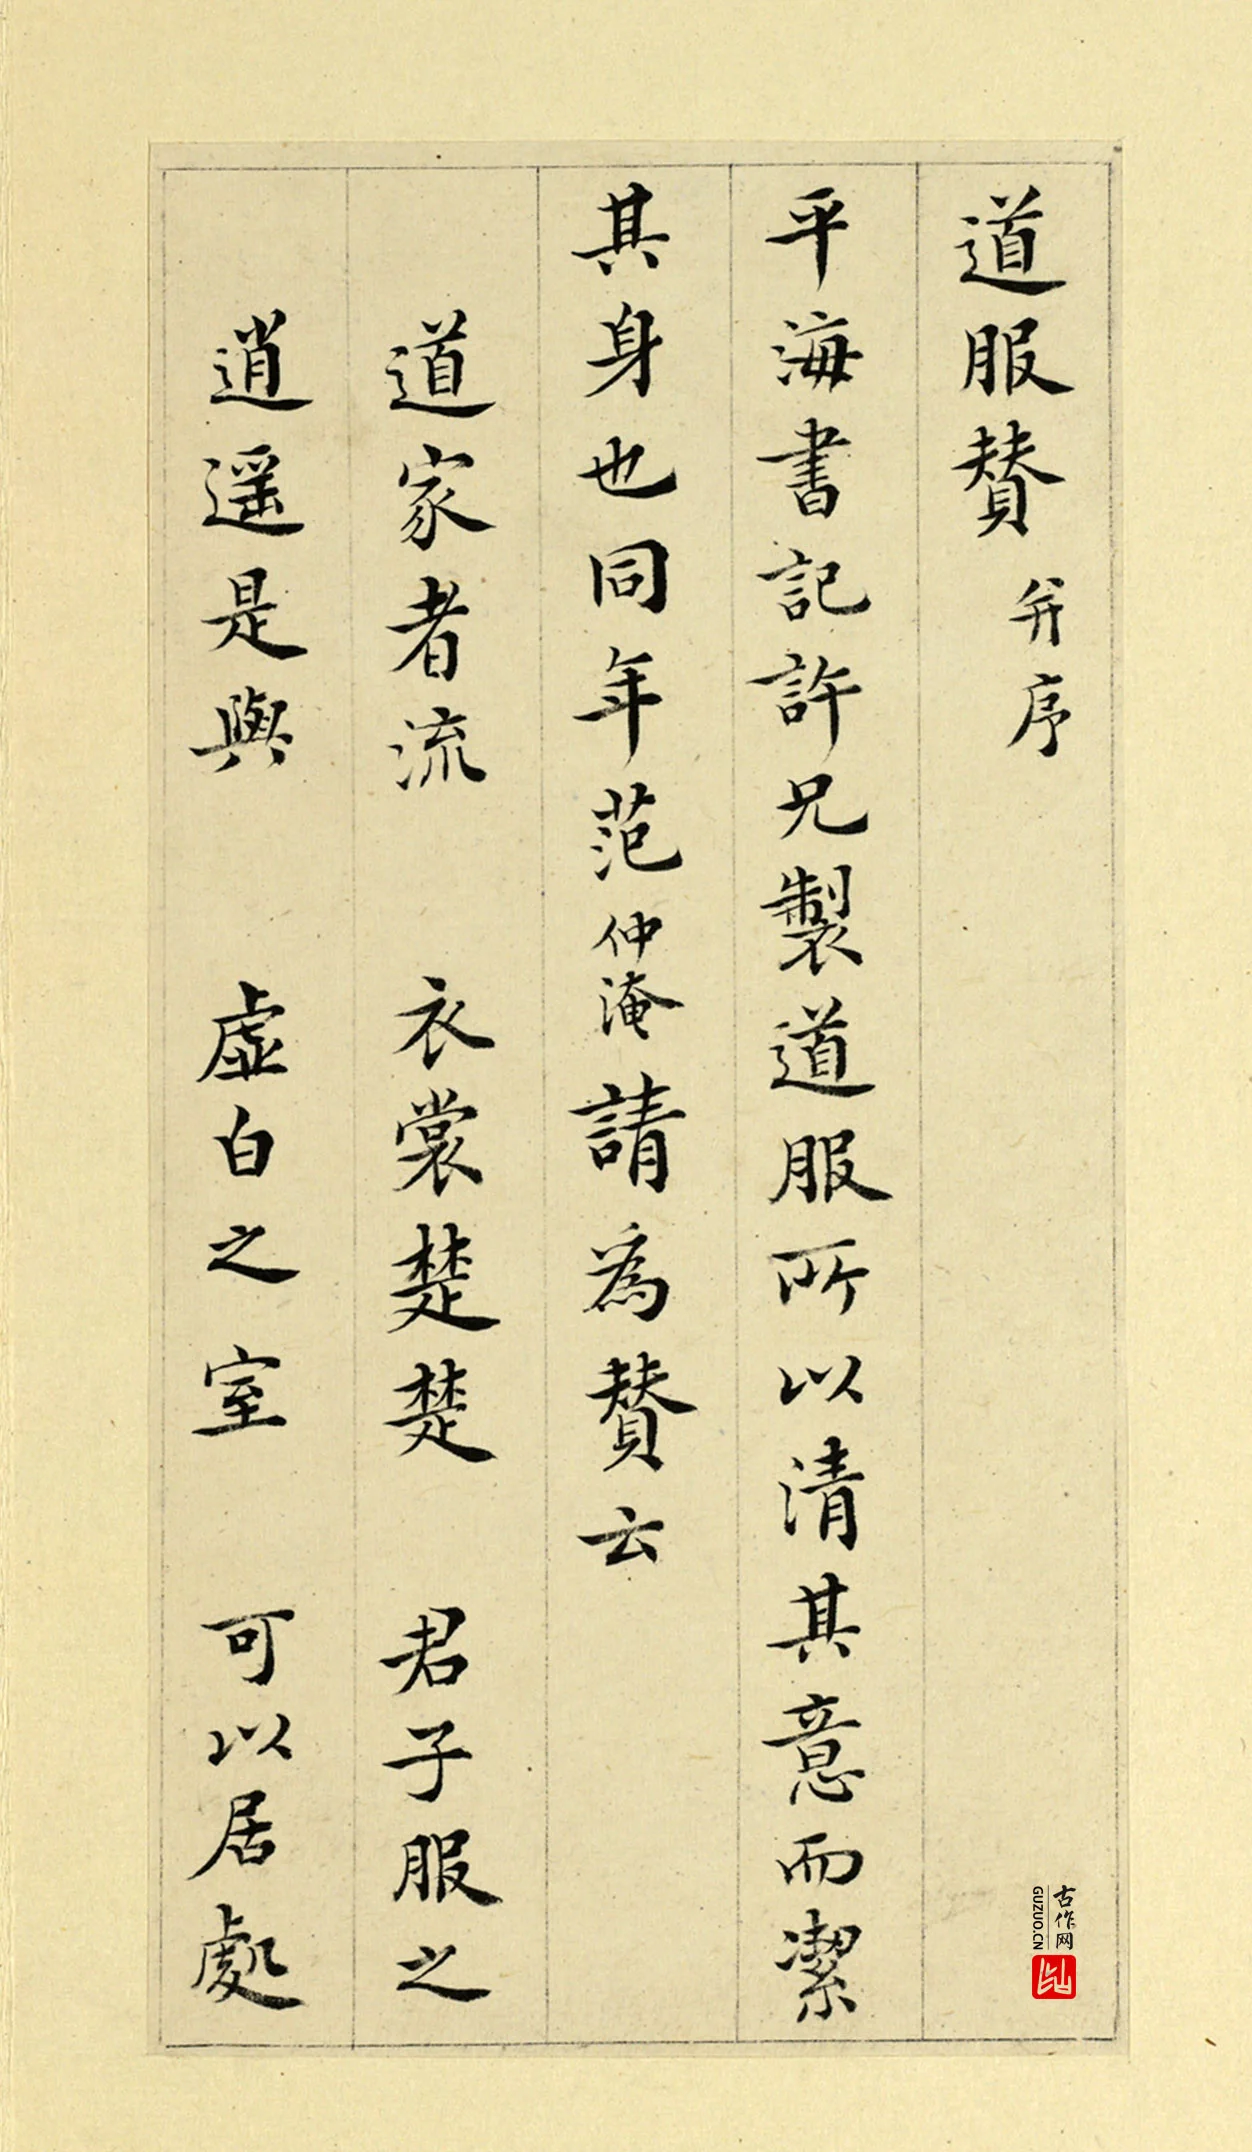 道服贊 并序
平海書記許兄製道服所以清其意而潔
其身也同年范仲淹請為贊云
道家者流 衣裳楚楚 君子服之
逍遥是與 虛白之室 可以居處
古作网
GUZUO.CN